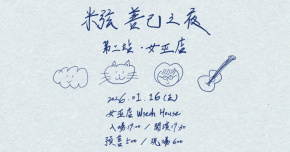 米弦 善己之夜
第二站・女巫店
2026.01.16(五)
女巫店 Witch House
入場19:00 / 開演19:30
預售500 / 現場600